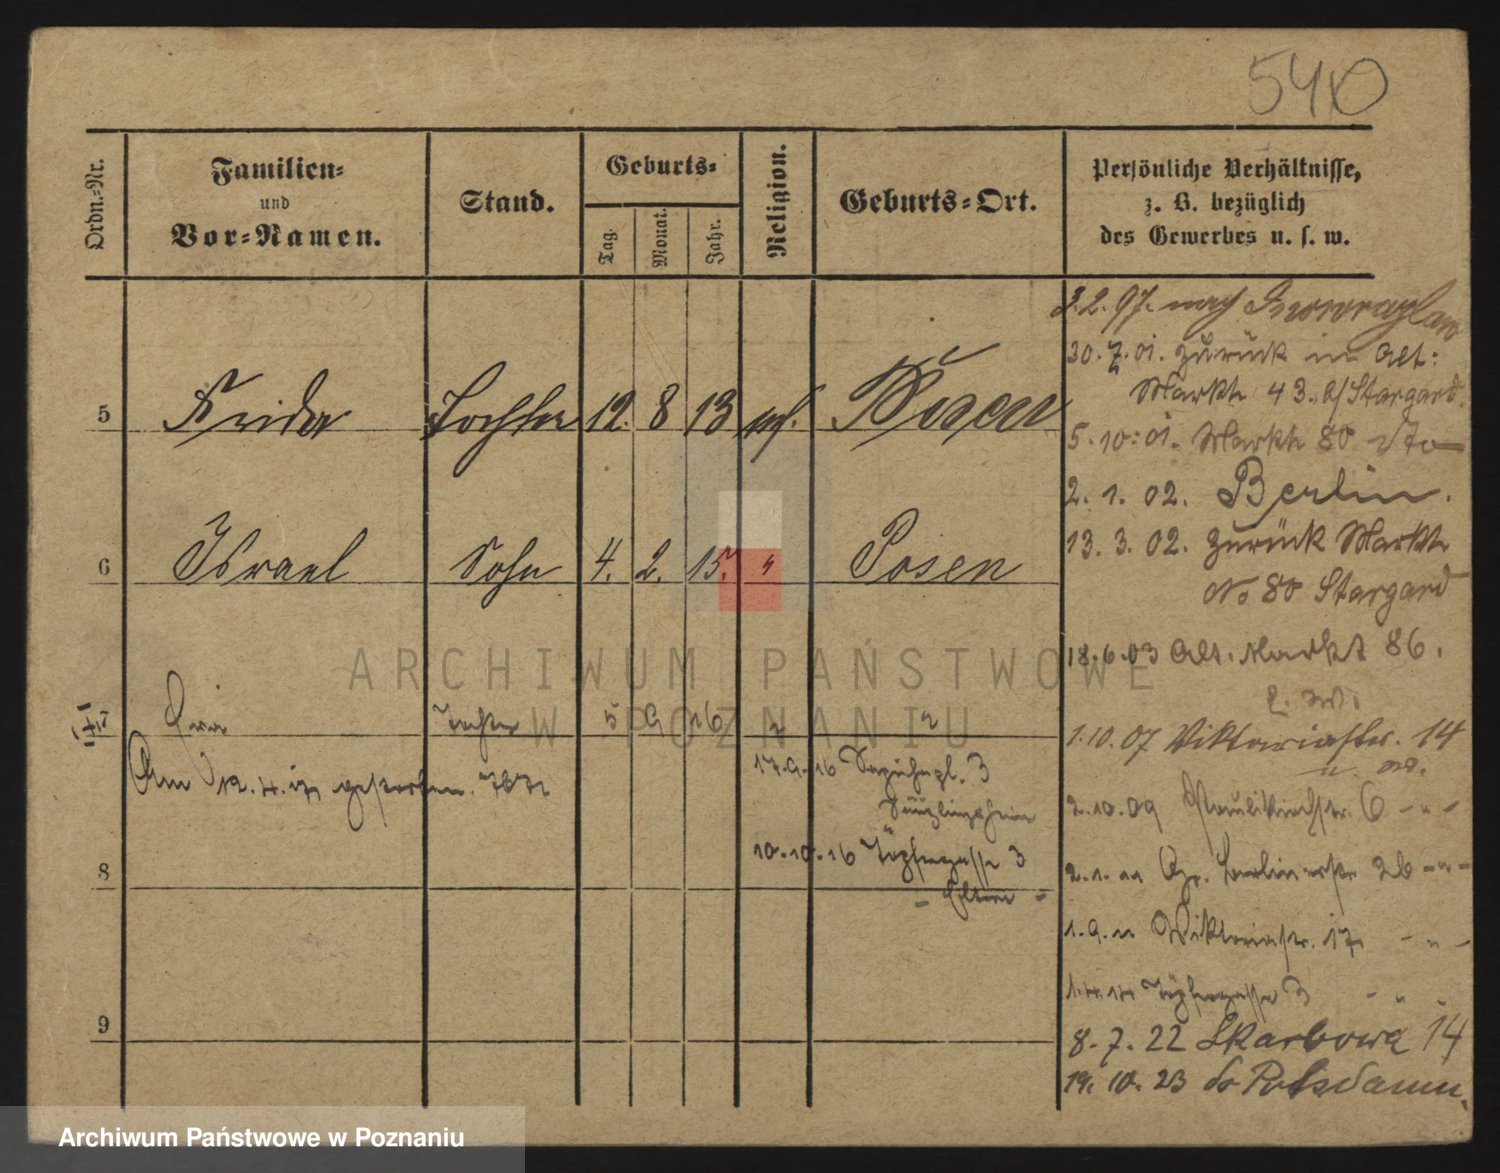 540
Ordn.-Nr.
Familien-
und
Vor-Namen.
Stand.
Geburts-
Tag.
Monat.
Jahr.
Religion.
Geburts-Ort.
Persönliche Verhältnisse,
z. B. bezüglich
des Gewerbes u. s. w.
5 Frida Tochter 12. 8 13 Posen
6 Israel Sohn 4. 2. 15. " Posen
Tochter 5 9 16 " "
Am 12.4.17 gestorben.
17.9.16 3
Säuglingsheim
10.10.16 Töpfergasse 3
- Eltern -
8
9
2.2.97. nach Inowrazlaw
30.7.01. zurück in Alt:
Markt 43. Stargard.
5.10.01. Markt 80
2. 1. 02. Berlin.
13. 3. 02. zurück Markt
No 80 Stargard
18.6.03 Alt. Markt 86.
1.10.07 Viktoriastr. 14
2.10.09 Paulikirchstr. 6 - " -
2.1.11 Gr. Berlinerstr 26 - " -
1.9.11 Viktoriastr. 17 - " -
1.4.14 Töpfergasse 3 - " -
8.7.22 Skarbowa 14
19.10.23 Potsdam
ARCHIWUM PAŃSTWOWE
W POZNANIU
Archiwum Państwowe w Poznaniu